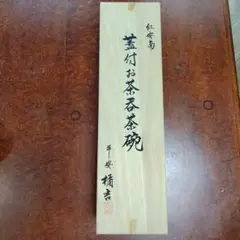 紅安南
蓋付お茶呑茶碗
平安 橘吉